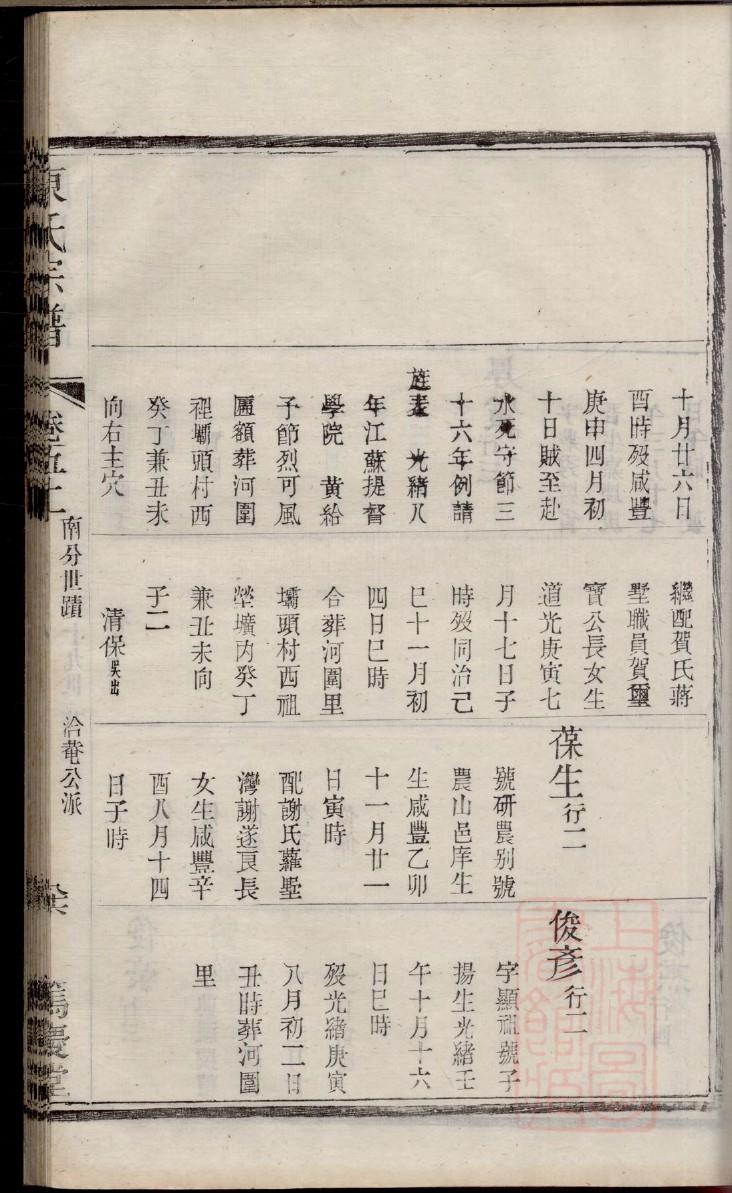 十月廿六日
酉時歿咸豐
庚申四月初
十日賊至赴
水死守節三
十六年例請
旌表 光緒八
年江蘇提督
學院 黃給
予節烈可風
匾額葬河圍
裡壩頭村西
癸丁兼丑未
向右主穴
繼配賀氏蔣
墅職員賀璽
寶公長女生
道光庚寅七
月十七日子
時歿同治己
巳十一月初
四日巳時
合葬河圍里
壩頭村西祖
塋壙內癸丁
兼丑未向
子二
清保吳出
葆生行二
號研農别號
農山邑庠生
生咸豐乙卯
十一月廿一
日寅時
配謝氏蘿墅
灣謝遂良長
女生咸豐辛
酉八月十四
日子時
俊彥行二
字顯祖號子
揚生光緒壬
午十月十六
日巳時
歿光緒庚寅
八月初二日
丑時葬河圍
里
陳氏宗譜
卷五十
南分世蹟
洽菴公派
篤慶堂